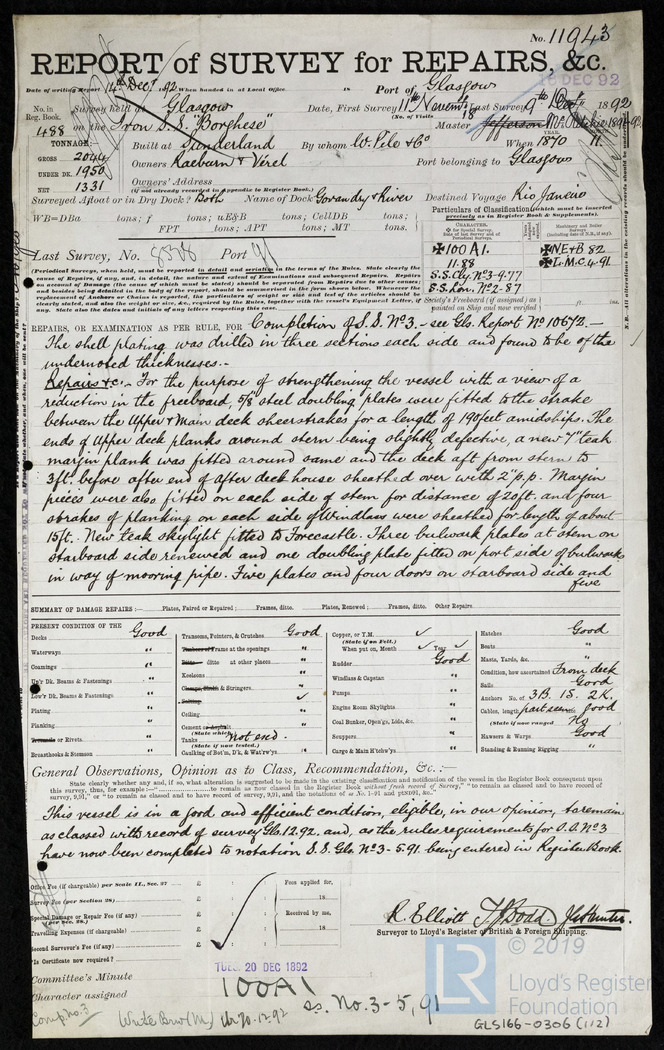 No. 11943
REPORT of SURVEY for REPAIRS, &c.
16 DEC 92
Date of writing Report 14th Decr 92 when handed in at Local Office 18 Port of Glasgow
No. in Reg. Book. Survey held at Glasgow Date, First Survey 11th Novem Last Survey 9th Decr 1892
(No. of Visits 18
488 on the Iron S.S. "Borghese" Master
TONNAGE:— Built at Sunderland By whom W. Pile & Co When 1870 11
GROSS 2044
UNDER DK. 1950 Owners Raeburn & Verel Port belonging to Glasgow
NET 1331 Owners' Address
(if not already recorded in Appendix to Register Book.)
Surveyed Afloat or in Dry Dock? Both Name of Dock Govan dry & River Destined Voyage Rio Janeiro
WB=DBa tons; f tons; uE&B tons; CellDB tons;
FPT tons; APT tons; MT tons.
Particulars of Classification (which must be inserted precisely as in Register Book & Supplements).
✠100A1. ✠NE&B 82
11.88 ✠L.M.C. 4.91
S.S. Cly. No 3-9.77
S.S. Lon. No 2-87
Society's Freeboard (if assigned) as painted on Ship and now verified ft. ins.
Last Survey, No. Port
(Periodical Surveys, when held, must be reported in detail and seriatim in the terms of the Rules. State clearly the cause of Repairs, if any, and, in detail, the nature and extent of Examinations and subsequent Repairs. Repairs on account of Damage (the cause of which must be stated) should be separated from Repairs due to other causes; and besides being detailed in the body of the report, should be summarized in the form shown below.
REPAIRS, OR EXAMINATION AS PER RULE, FOR Completion of S.S. No 3. — see Gls. Report No 10672.—
The shell plating was drilled in three sections each side and found to be of the
undernoted thicknesses.—
Repairs &c.— For the purpose of strengthening the vessel with a view of a
reduction in the freeboard, 5/8 steel doubling plates were fitted to the strake
between the Upper & Main deck sheerstrakes for a length of 190 feet amidships. The
ends of Upper deck planks around stern being slightly defective, a new 7" teak
margin plank was fitted around same and the deck aft from stern to
3ft. before after end of after deck house sheathed over with 2" p.p. Margin
pieces were also fitted on each side of stem for distance of 20ft. and four
strakes of planking on each side of Windlass were sheathed for length of about
15ft. New teak skylight fitted to Forecastle. Three bulwark plates at stem on
starboard side renewed and one doubling plate fitted on port side of bulwark
in way of mooring pipe. Five plates and four doors on starboard side and
five
SUMMARY OF DAMAGE REPAIRS :— Plates, Faired or Repaired ; Frames, ditto. Plates, Renewed ; Frames, ditto. Other Repairs.
PRESENT CONDITION OF THE
Decks Good
Waterways "
Coamings "
Up'r Dk. Beams & Fastenings "
Low'r Dk. Beams & Fastenings "
Plating "
Planking "
Treenails or Rivets "
Breasthooks & Stemson "
Transoms, Pointers, & Crutches Good
Timbers or Frame at the openings "
Ditto ditto at other places "
Keelsons "
Clamps, Shelfs & Stringers "
Salting ✓
Ceiling "
Cement or Asphalt "
(State which)
Tanks Not tested.
(State if now tested.)
Caulking of Bot'm, D'k, & Wat'rw'ys "
Copper, or Y.M. ✓
(State if on Felt.)
When put on, Month ✓ Year ✓
Rudder Good
Windlass & Capstan "
Pumps "
Engine Room Skylights "
Coal Bunker, Open'gs, Lids, &c. "
Scuppers "
Cargo & Main H'tchw'ys "
Hatches Good
Boats "
Masts, Yards, &c. "
Condition, how ascertained From deck
Sails Good
Anchors No. of 3B. 1S. 2K.
Cables, length part seen good
(State if now ranged) No
Hawsers & Warps Good
Standing & Running Rigging "
General Observations, Opinion as to Class, Recommendation, &c. :—
State clearly whether any, and if so, what alteration is suggested to be made in the existing classification and notification of the vessel in the Register Book consequent upon
this survey, thus, for example :—" to remain as now classed in Register Book without fresh record of Survey," "to remain as classed and to have record of
survey, 9,91," or "to remain as classed and to have record of survey, 9,91, and the notations of
This vessel is in a good and efficient condition, eligible, in our opinion, to remain
as classed with record of survey Gls. 12.92. and, as the rules requirements for S.S. No 3
have now been completed to notation S.S. Gls. No 3-5.91 being entered in Register Book.
Office Fee (if chargeable) per Scale II., Sec. 27 £ : : Fees applied for,
Survey Fee (per Section 28) £ : : 18
Special Damage or Repair Fee (if any) (per Sec. 28.) £ : : Received by me,
Travelling Expenses (if chargeable) £ : : 18
Second Surveyor's Fee (if any) £ : :
*Is Certificate now required?
R. Elliott T. J. Dodd. J. G. Hunter.
Surveyor to Lloyd's Register of British & Foreign Shipping.
Committee's Minute TUES. 20 DEC 1892
Character assigned 100A1
s.s. No. 3-5,91
Comp. no. 3
© 2019
LR
Lloyd's Register
Foundation
GLS166-0306 (112)